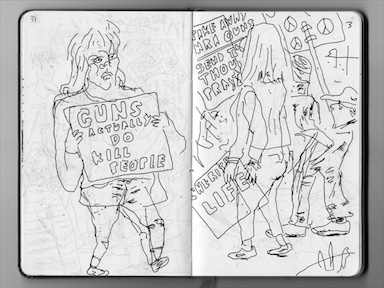 GUNS
ACTUALLY
DO
KILL
PEOPLE
TAKE AWAY
NRA GUNS
SEND
THOU
LIFE